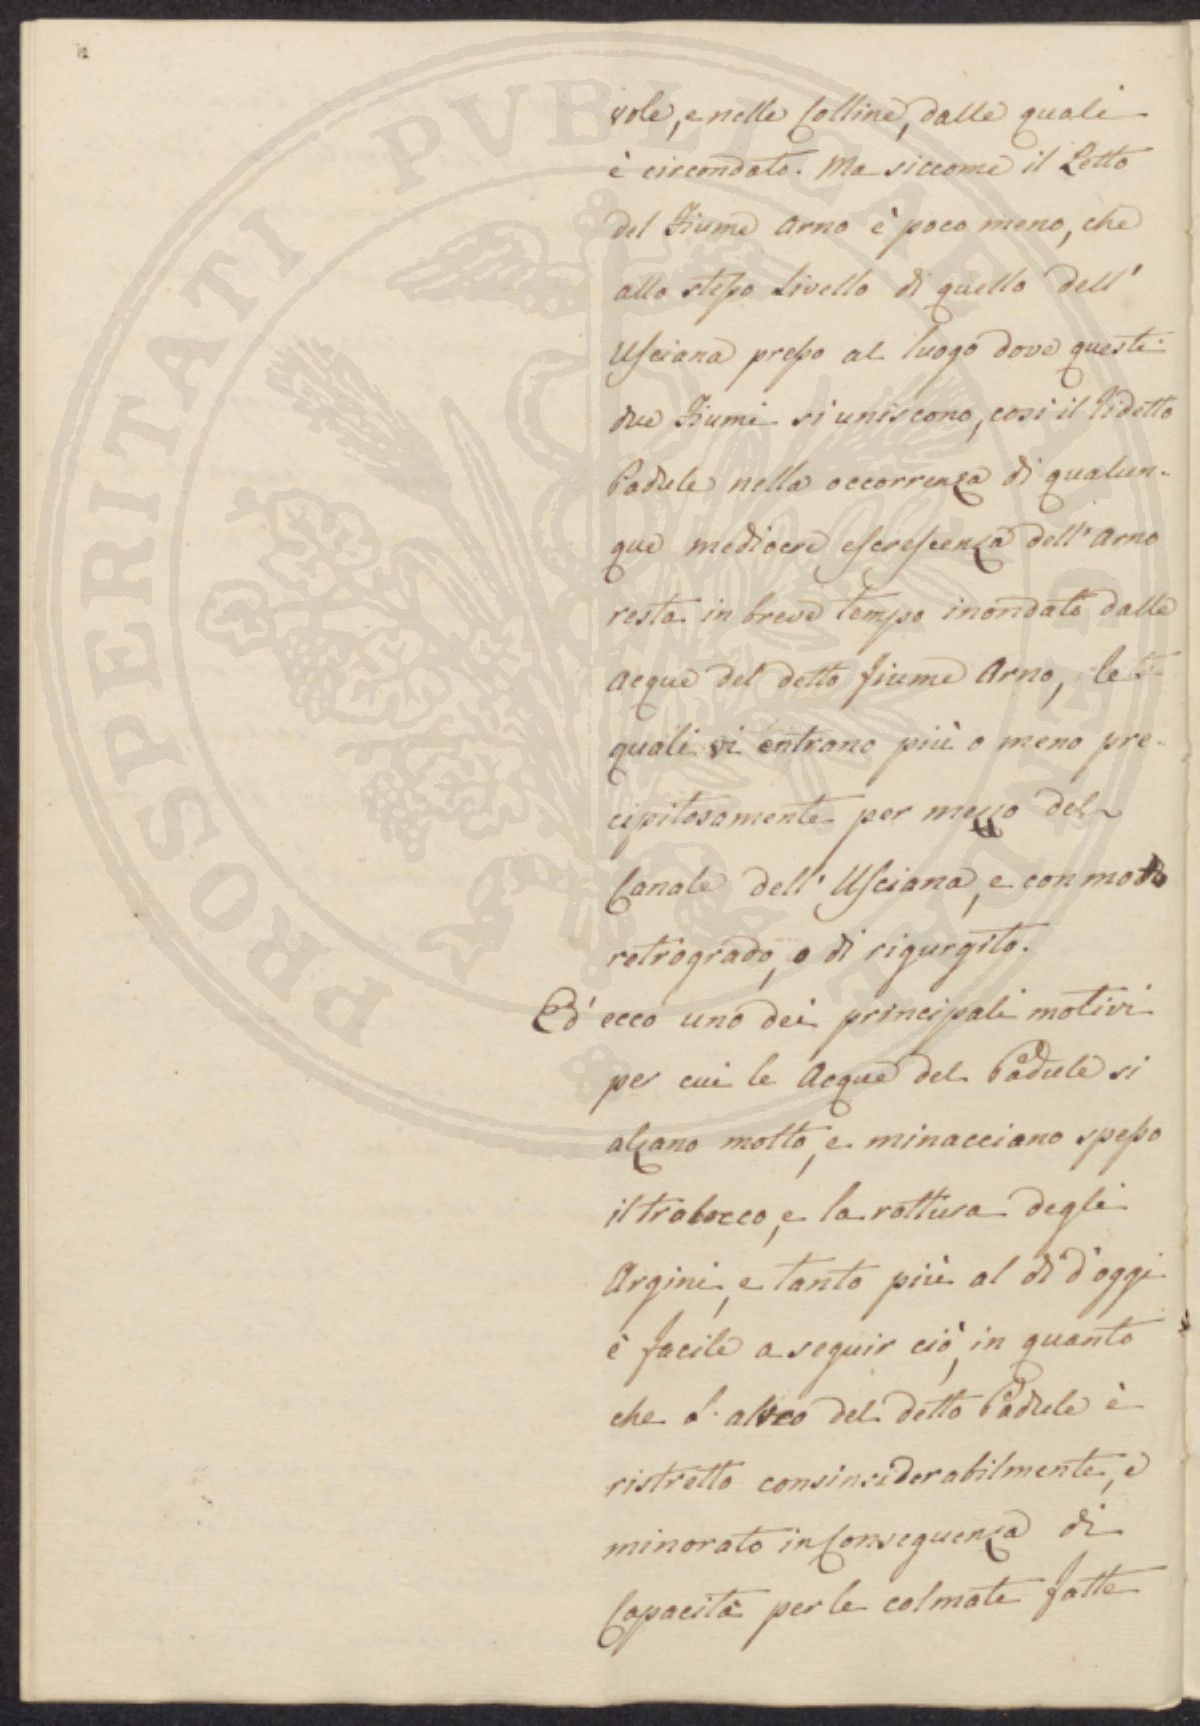 vole, e nelle Colline, dalle quali
è circondato. Ma siccome il Letto
del Fiume Arno è poco meno, che
allo stesso Livello di quello dell'
Usciana presso al luogo dove questi
due Fiumi si uniscono, così il
Padule nella occorrenza di qualun-
que mediocre escrescenza dell'Arno
resta in breve tempo inondato dalle
Acque del detto fiume Arno, le
quali vi entrano più o meno pre-
cipitosamente per mezzo del
Canale dell'Usciana, e con modo
retrogrado, o di rigurgito.
Ed' ecco uno dei principali motivi
per cui le Acque del Padule si
alzano molto, e minacciano spesso
il trabocco, e la rottura degli
Argini, e tanto più al dì d'oggi
è facile a seguir ciò, in quanto
che l'alveo del detto Padule è
ristretto consinsiderabilmente, e
minorato in Conseguenza di
Capacità per le colmate fatte
PROSPERITATI PVBLICAE AVGENDAE